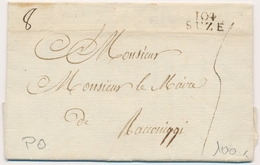 8
104
SUZE
à Monsieur
Monsieur le Maire
de Racconiggi
PO
100